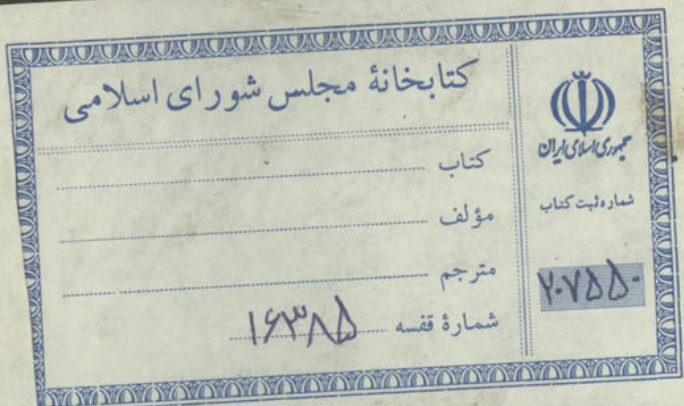 کتابخانهٔ مجلس شورای اسلامی
کتاب
مؤلف
مترجم
شمارهٔ قفسه ۱۶۳۸۵
جمهوری اسلامی ایران
شماره ثبت کتاب
۲۰۷۵۵۰